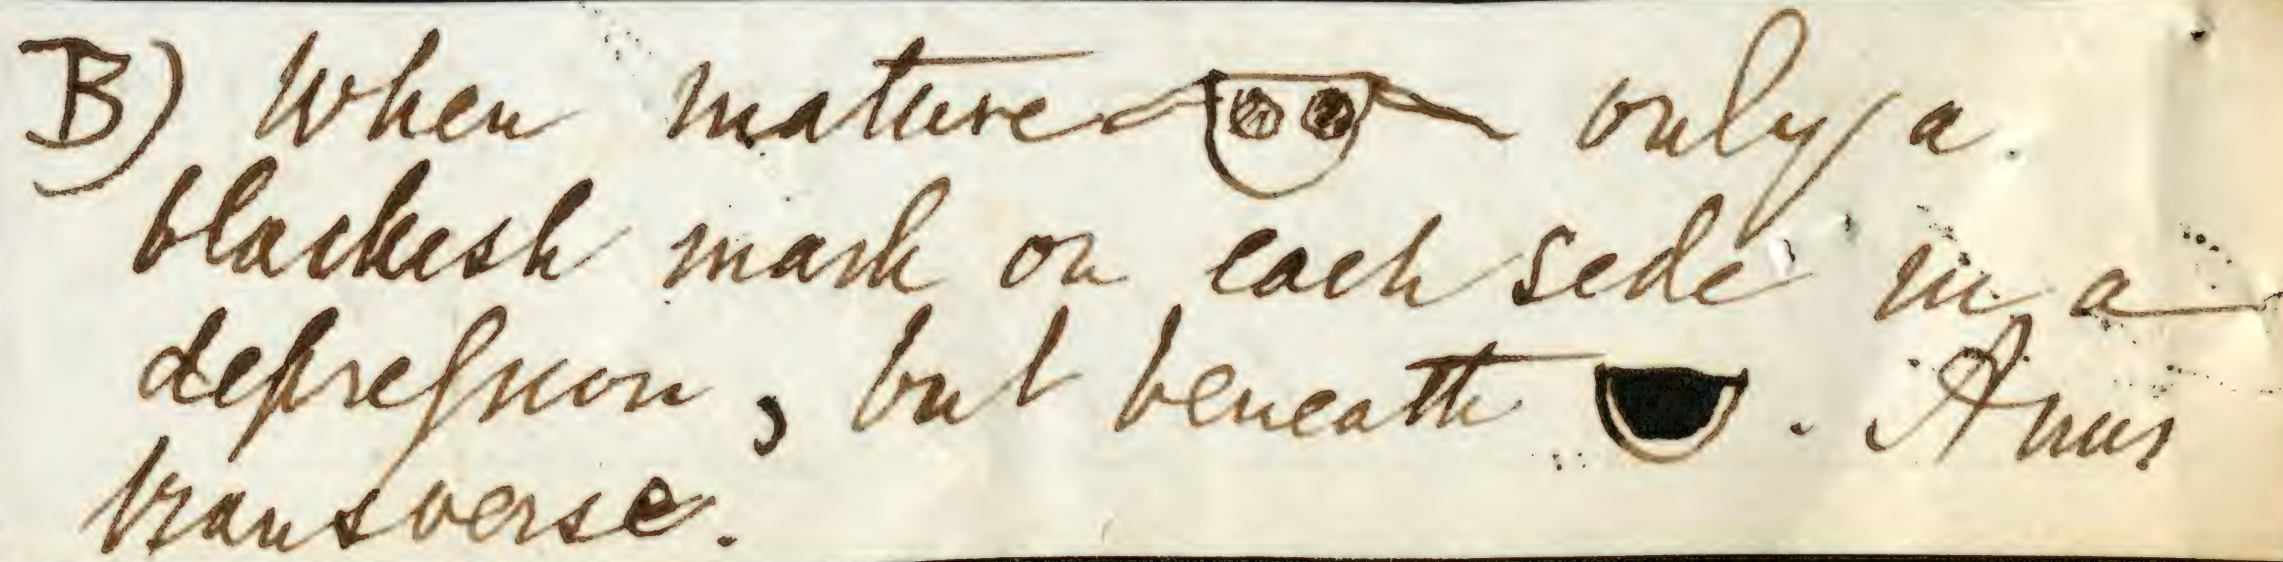 B) When mature only a
blackish mark on each side in a
depression, but beneath . Anus
transverse.